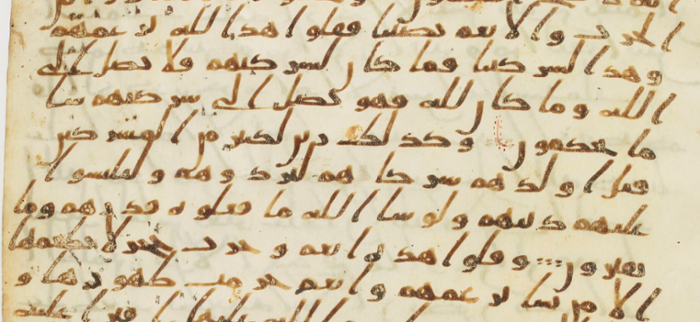 الحرث والانعم نصيبا فقلوا هذا لله بزعمهم
وهذا لشركينا فما كان لشركيهم فلا يصل الى
الله وما كان لله فهو يصل الى شركيهم سا
ما يحكمون وكذلك زين لكثير من المشركين
قتل اولدهم شركاهم ليردوهم وليلبسوا
عليهم دينهم ولو شا الله ما فعلوه فذرهم وما
يفترون وقلوا هذه انعم وحرث حجر لا يطعمها
الا من نشا بزعمهم وانعم حرمت ظهورها و